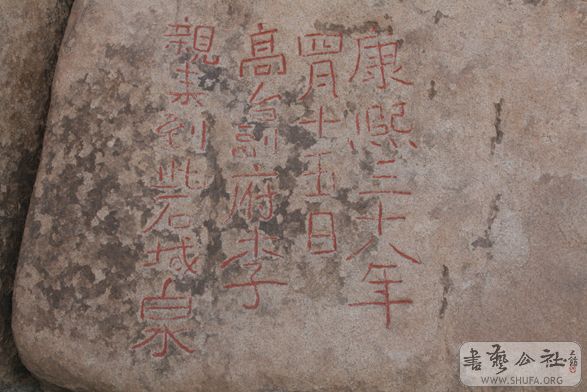 康熙三十八年
四月十五日
高台副府李
親来到此石域泉
書藝公社
WWW.SHUFA.ORG